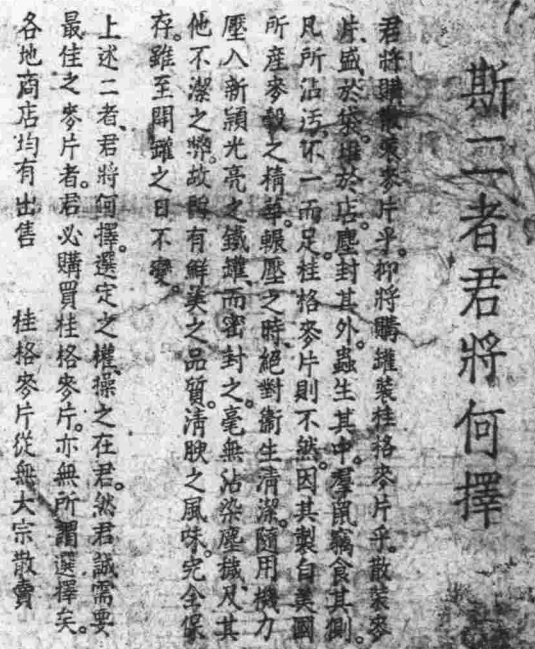 斯二者君將何擇
君將購散裝麥片乎。抑將購罐裝桂格麥片乎。散裝麥
片、盛於袋。堆於店。塵封其外。蟲生其中。羣鼠竊食其側。
凡所沾汚、不一而足。桂格麥片則不然。因其製自美國
所產麥穀之精華。輾壓之時、絕對衞生清潔。隨用機力
壓入新穎光亮之鐵罐、而密封之。毫無沾染塵穢、及其
他不潔之弊。故能有鮮美之品質。清腴之風味。完全保
存。雖至開罐之日不變。
上述二者、君將何擇。選定之權、操之在君。然君誠需要
最佳之麥片者。君必購買桂格麥片。亦無所謂選擇矣。
各地商店均有出售　桂格麥片從無大宗散賣